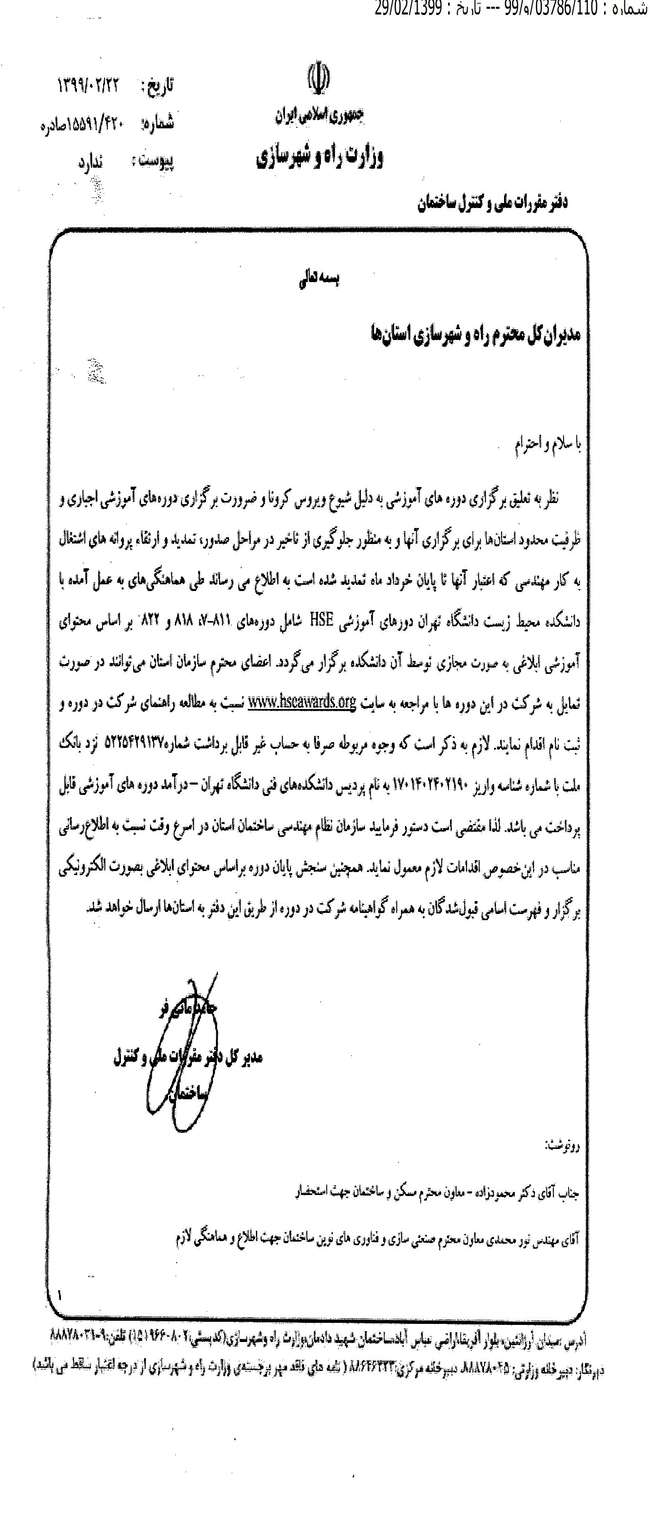 شماره : 99/و/03786/110 --- تاریخ : 29/02/1399
جمهوری اسلامی ایران
وزارت راه و شهرسازی
دفتر مقررات ملی و کنترل ساختمان
تاریخ: ۱۳۹۹/۰۲/۲۲
شماره: ۱۵۵۹۱/۴۲۰صادره
پیوست: ندارد
بسمه تعالی
مدیران کل محترم راه و شهرسازی استان‌ها
با سلام و احترام
نظر به تعلیق برگزاری دوره های آموزشی به دلیل شیوع ویروس کرونا و ضرورت برگزاری دوره‌های آموزشی اجباری و
ظرفیت محدود استان‌ها برای برگزاری آنها و به منظور جلوگیری از تاخیر در مراحل صدور، تمدید و ارتقاء پروانه های اشتغال
به کار مهندسی که اعتبار آنها تا پایان خرداد ماه تمدید شده است به اطلاع می رساند طی هماهنگی‌های به عمل آمده با
دانشکده محیط زیست دانشگاه تهران دورهای آموزشی HSE شامل دوره‌های ۸۱۱-۷، ۸۱۸ و ۸۲۲ بر اساس محتوای
آموزشی ابلاغی به صورت مجازی توسط آن دانشکده برگزار می‌گردد. اعضای محترم سازمان استان می‌توانند در صورت
تمایل به شرکت در این دوره ها با مراجعه به سایت www.hseawards.org نسبت به مطالعه راهنمای شرکت در دوره و
ثبت نام اقدام نمایند. لازم به ذکر است که وجوه مربوطه صرفا به حساب غیر قابل برداشت شماره۵۲۲۵۴۲۹۱۳۷ نزد بانک
ملت با شماره شناسه واریز ۱۷۰۱۴۰۲۴۰۲۱۹۰ به نام پردیس دانشکده‌های فنی دانشگاه تهران –درآمد دوره های آموزشی قابل
پرداخت می باشد. لذا مقتضی است دستور فرمایید سازمان نظام مهندسی ساختمان استان در اسرع وقت نسبت به اطلاع‌رسانی
مناسب در این‌خصوص اقدامات لازم معمول نماید. همچنین سنجش پایان دوره براساس محتوای ابلاغی بصورت الکترونیکی
برگزار و فهرست اسامی قبول‌شدگان به همراه گواهینامه شرکت در دوره از طریق این دفتر به استان‌ها ارسال خواهد شد.
حامد مانی فر
مدیر کل دفتر مقررات ملی و کنترل
ساختمان
رونوشت:
جناب آقای دکتر محمودزاده – معاون محترم مسکن و ساختمان جهت استحضار
آقای مهندس نور محمدی معاون محترم صنعتی سازی و فناوری های نوین ساختمان جهت اطلاع و هماهنگی لازم
۱
آدرس :میدان آرژانتین، بلوار آفریقا،اراضی عباس آباد،ساختمان شهید دادمان،وزارت راه وشهرسازی(کدپستی:۸۰۲-۱۵۱۹۶۶) تلفن:۹-۸۸۸۷۸۰۳۱
دورنگار: دبیرخانه وزارتی: ۸۸۸۷۸۰۴۵، دبیرخانه مرکزی:۸۸۶۴۶۳۳۳ ( نامه های فاقد مهر برجسته‌ی وزارت راه و شهرسازی از درجه اعتبار ساقط می باشد)